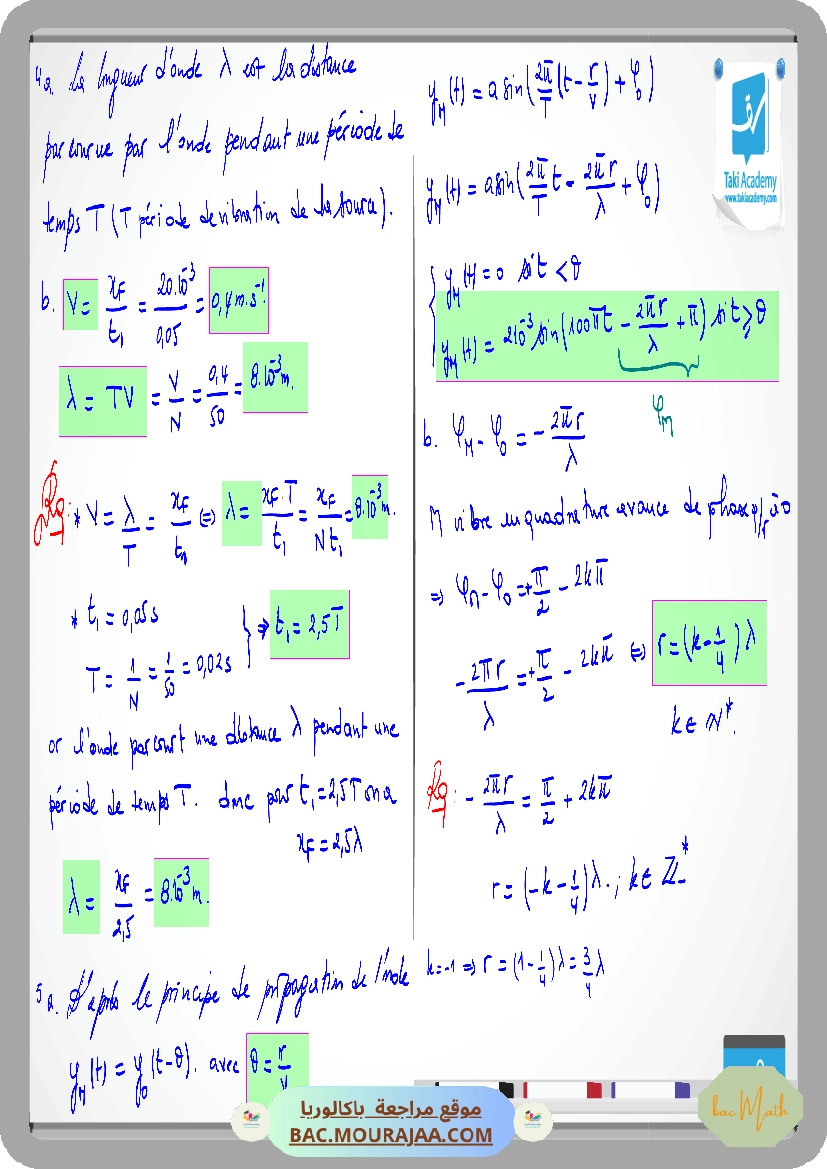 4a. La longueur d'onde λ est la distance
parcourue par l'onde pendant une période de
temps T (T période de vibration de la source).
b. V = xF/t₁ = 20.10⁻³/0,05 = 0,4 m.s⁻¹
λ = TV = V/N = 0,4/50 = 8.10⁻³ m.
Rq: * V = λ/T = xF/t₁ ⇔ λ = xF.T/t₁ = xF/Nt₁ = 8.10⁻³ m.
* t₁ = 0,05 s
T = 1/N = 1/50 = 0,02 s } ⇒ t₁ = 2,5T
or l'onde parcourt une distance λ pendant une
période de temps T. donc pour t₁ = 2,5T on a
xF = 2,5λ
λ = xF/2,5 = 8.10⁻³ m.
5a. D'après le principe de propagation de l'onde
yM(t) = y₀(t-θ). avec θ = r/V
yM(t) = a sin(2π/T (t - r/V) + φ₀)
yM(t) = a sin(2π/T t - 2πr/λ + φ₀)
{ yM(t) = 0 si t < θ
yM(t) = 2.10⁻³ sin(100πt - 2πr/λ + π) si t ≥ θ
φM
b. φM - φ₀ = - 2πr/λ
M vibre en quadrature avance de phase p/r à O
⇒ φM - φ₀ = + π/2 - 2kπ
- 2πr/λ = + π/2 - 2kπ ⇔ r = (k - 1/4) λ
k ∈ ℕ*.
Rq: - 2πr/λ = π/2 + 2kπ
r = (-k - 1/4) λ. ; k ∈ ℤ₋*
k = -1 ⇒ r = (1 - 1/4) λ = 3/4 λ
Taki Academy
www.takiacademy.com
موقع مراجعة باكالوريا
BAC.MOURAJAA.COM
bac Math